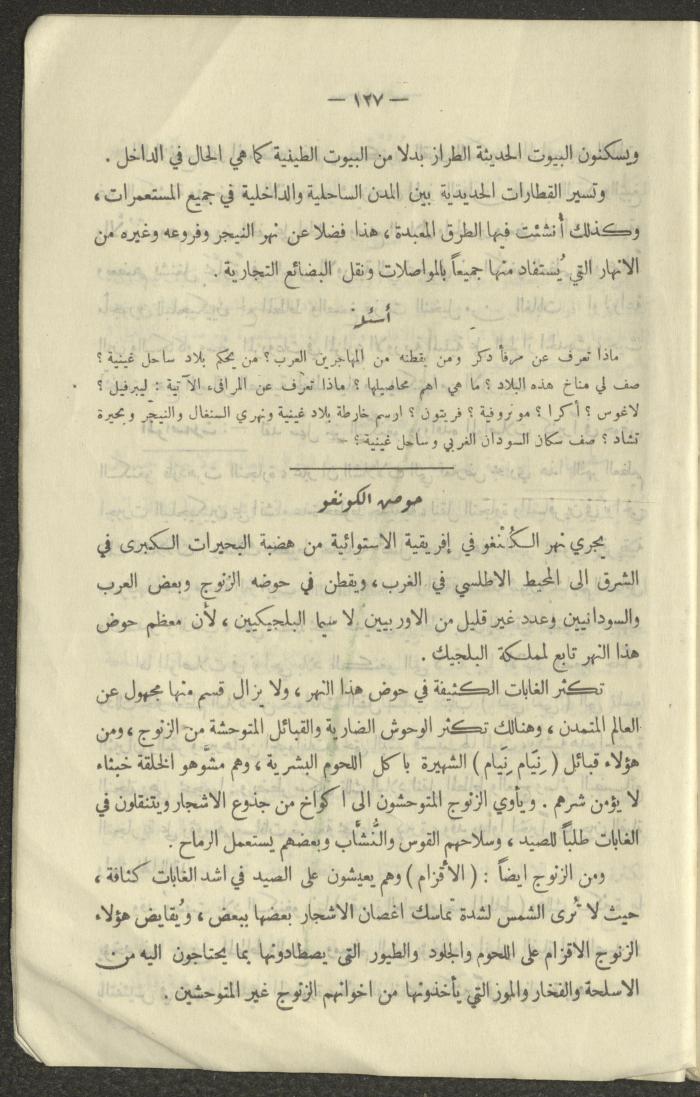 — ١٢٧ —
ويسكنون البيوت الحديثة الطراز بدلا من البيوت الطينية كما هي الحال في الداخل .
وتسير القطارات الحديدية بين المدن الساحلية والداخلية في جميع المستعمرات ،
وكذلك أُنشئت فيها الطرق المعبدة ، هذا فضلا عن نهر النيجر وفروعه وغيره من
الانهار التي يُستفاد منها جميعاً بالمواصلات ونقل البضائع التجارية .
أسئلة
ماذا تعرف عن مرفأ دكر ومن يقطنه من المهاجرين العرب ؟ من يحكم بلاد ساحل غينية ؟
صف لي مناخ هذه البلاد ؟ ما هي اهم محاصيلها ؟ ماذا تعرف عن المرافىء الآتية : ليبرفيل ؟
لاغوس ؟ أكرا ؟ مونروفية ؟ فريتون ؟ ارسم خارطة بلاد غينية ونهري السنغال والنيجر وبحيرة
تشاد ؟ صف سكان السودان الغربي وساحل غينية ؟ –
حوض الكونغو
يجري نهر الكُنْغو في إفريقية الاستوائية من هضبة البحيرات الكبرى في
الشرق الى المحيط الاطلسي في الغرب ، ويقطن في حوضه الزنوج وبعض العرب
والسودانيين وعدد غير قليل من الاوربيين لا سيما البلجيكيين ، لأن معظم حوض
هذا النهر تابع لمملكة البلجيك .
تكثر الغابات الكثيفة في حوض هذا النهر ، ولا يزال قسم منها مجهول عن
العالم المتمدن ، وهنالك تكثر الوحوش الضارية والقبائل المتوحشة من الزنوج ، ومن
هؤلاء قبائل ( نِيَام نِيَام ) الشهيرة باكل اللحوم البشرية ، وهم مشوَّهو الخلقة خبثاء
لا يؤمن شرهم . ويأوي الزنوج المتوحشون الى اكواخ من جذوع الاشجار ويتنقلون في
الغابات طلباً للصيد ، وسلاحهم القوس والنُّشَّاب وبعضهم يستعمل الرماح .
ومن الزنوج ايضاً : ( الأقزام ) وهم يعيشون على الصيد في اشد الغابات كثافة ،
حيث لا تُرى الشمس لشدة تماسك اغصان الاشجار بعضها ببعض ، ويُقايض هؤلاء
الزنوج الاقزام على اللحوم والجلود والطيور التي يصطادونها بما يحتاجون اليه من
الاسلحة والفخار والموز التي يأخذونها من اخوانهم الزنوج غير المتوحشين .